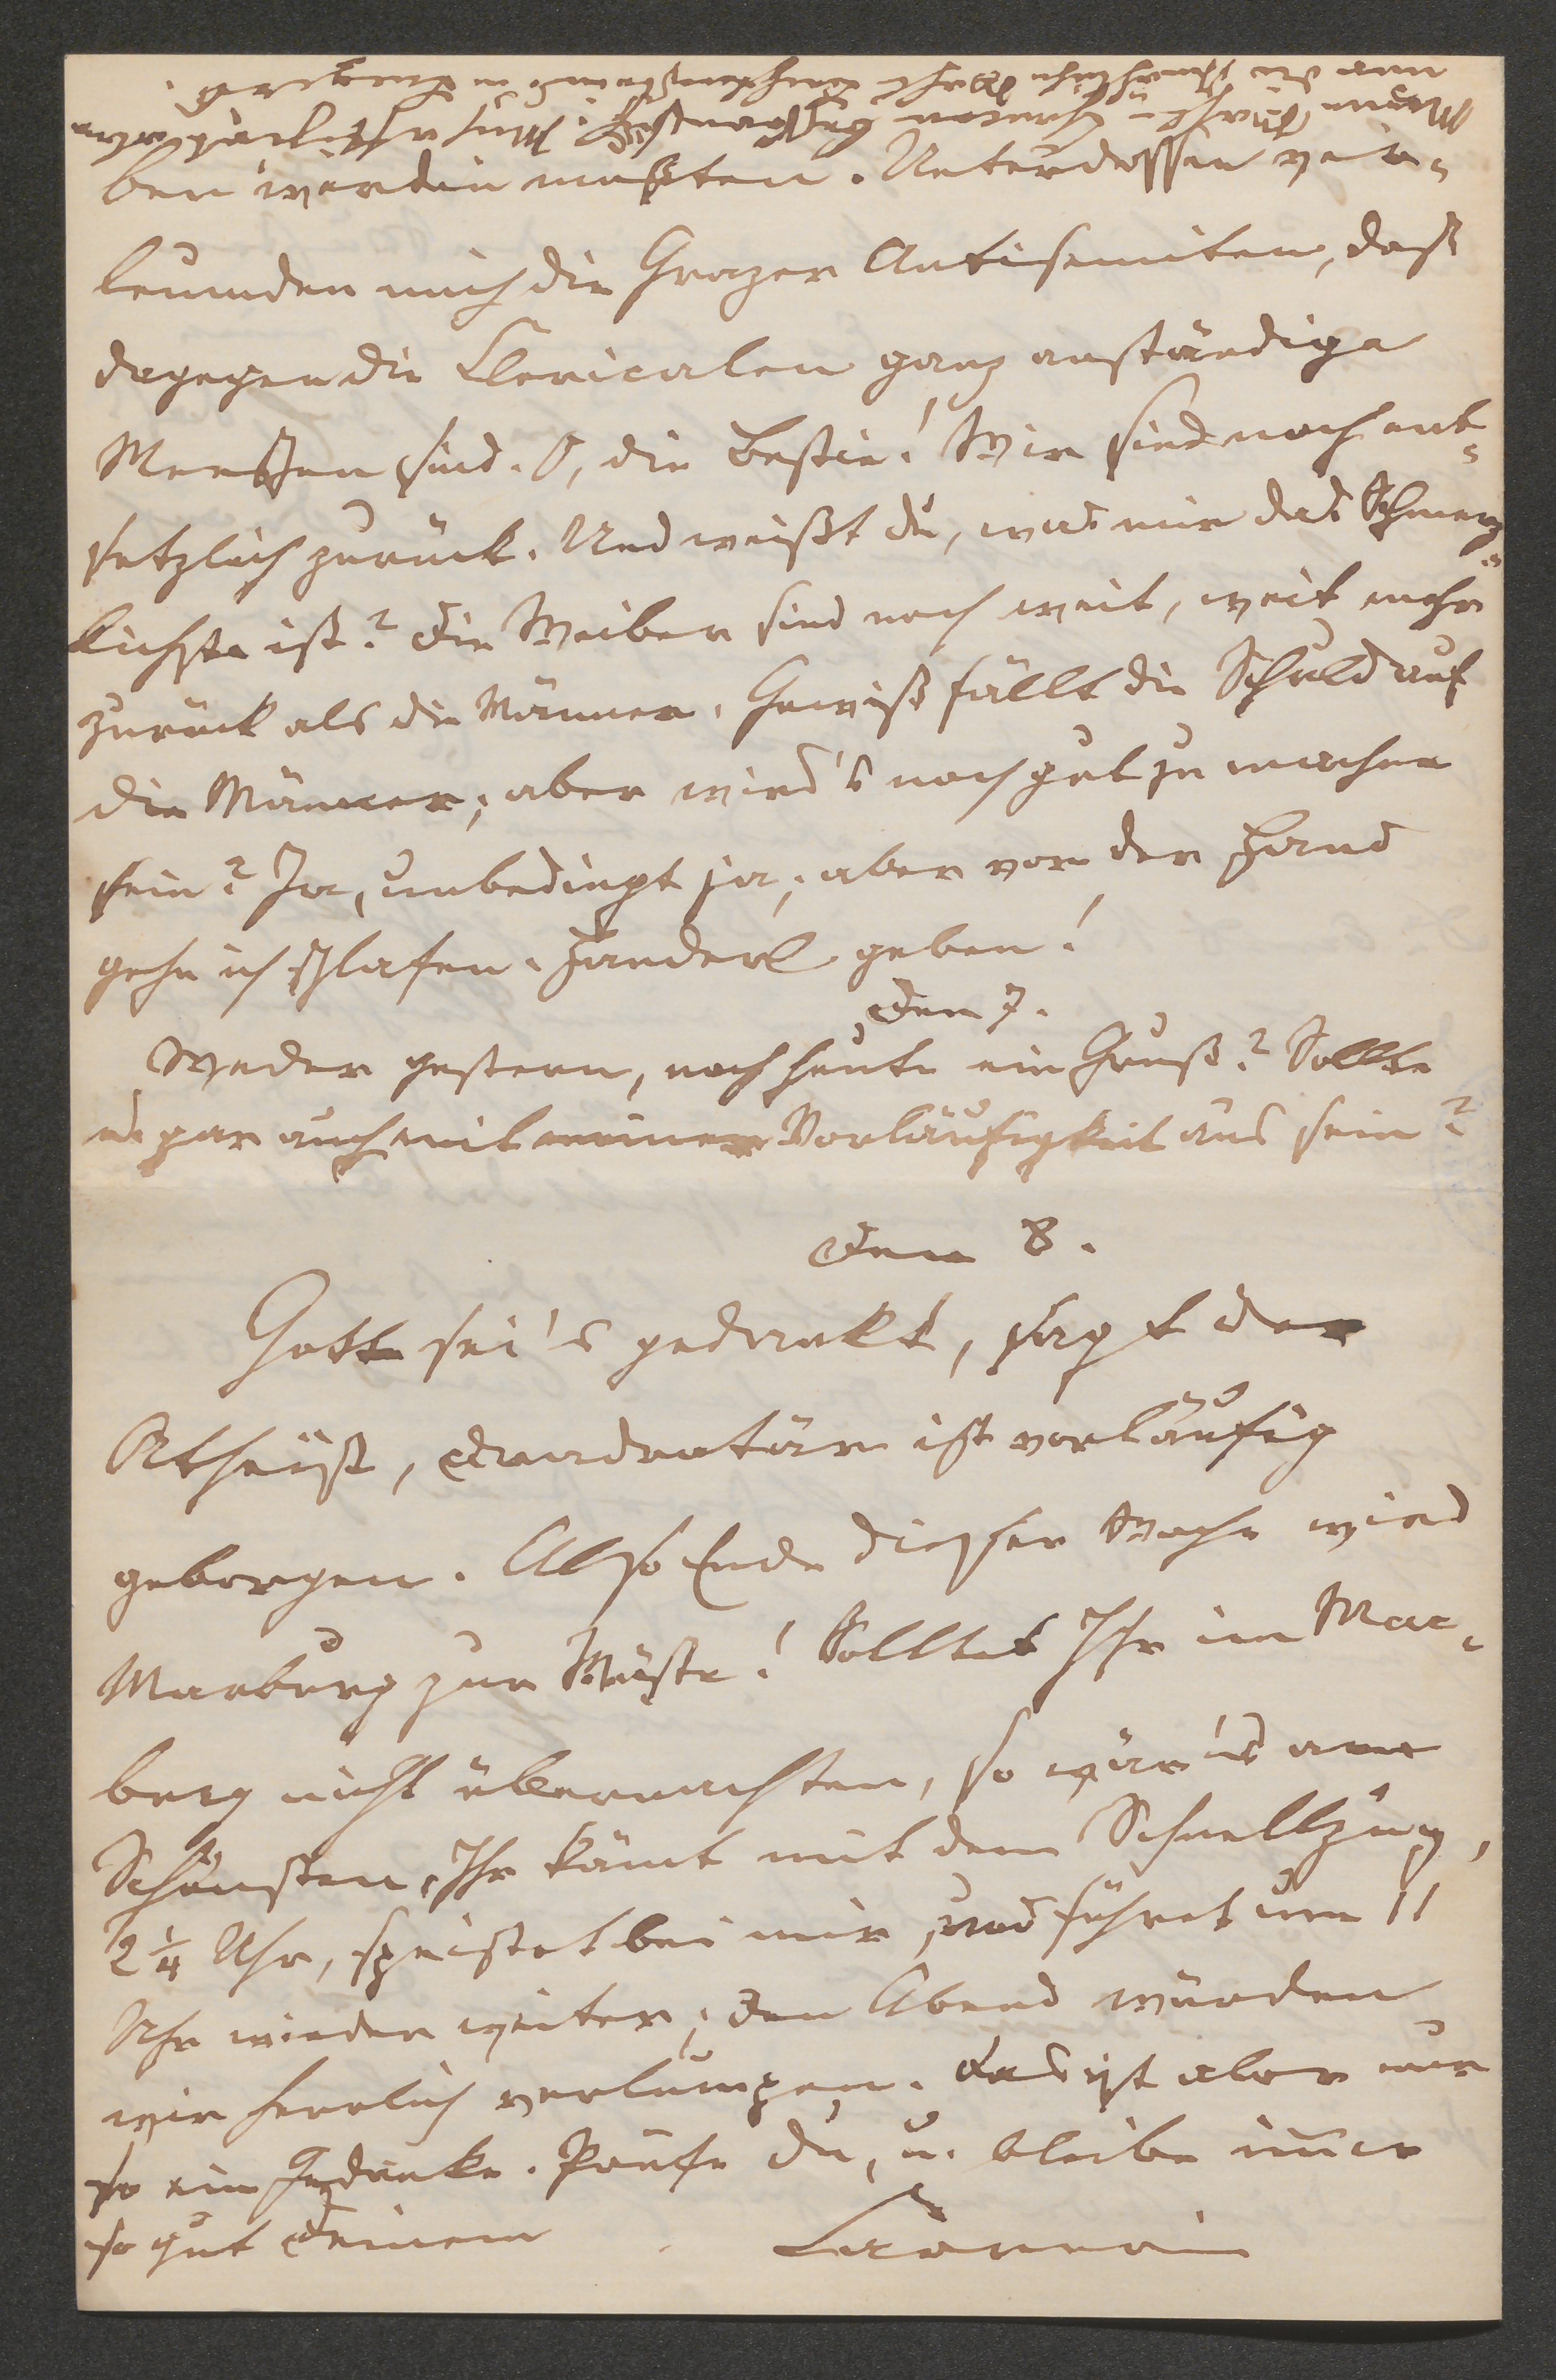 ben werden mußten. Unterdessen ver-
leumden mich die Grazer Antisemiten, daß
dagegen die Clericalen ganz anständige
Menschen sind. O, die Bestie! Wir sind noch ent-
setzlich zurück. Und weißt du, was mir das Schmerz-
lichste ist? Die Weiber sind noch weit, weit mehr
zurück als die Männer. Gewiß fällt die Schuld auf
die Männer; aber wird's noch gut zu machen
sein? Ja, unbedingt ja; aber vor der Hand
gehe ich schlafen. Handerl geben!
Den 7.
Weder gestern, noch heute ein Gruß? Sollte
es gar auch mit meiner Vorläufigkeit aus sein?
Den 8.
Gott sei's gedankt, sagt der
Atheist, ist vorläufig
geborgen. Also Ende dieser Woche wird
Marburg zur Wüste! Solltet Ihr in Mar-
burg nicht übernachten, so wär's am
Schönsten, Ihr kämt mit dem Schnellzug,
2 1/4 Uhr, speistet bei mir und führet um 11
Uhr wieder weiter; den Abend würden
wir herrlich verlumpen. Das ist aber nur
so ein Gedanke. Prüfe du, u. bleibe immer
so gut Deinem Carneri